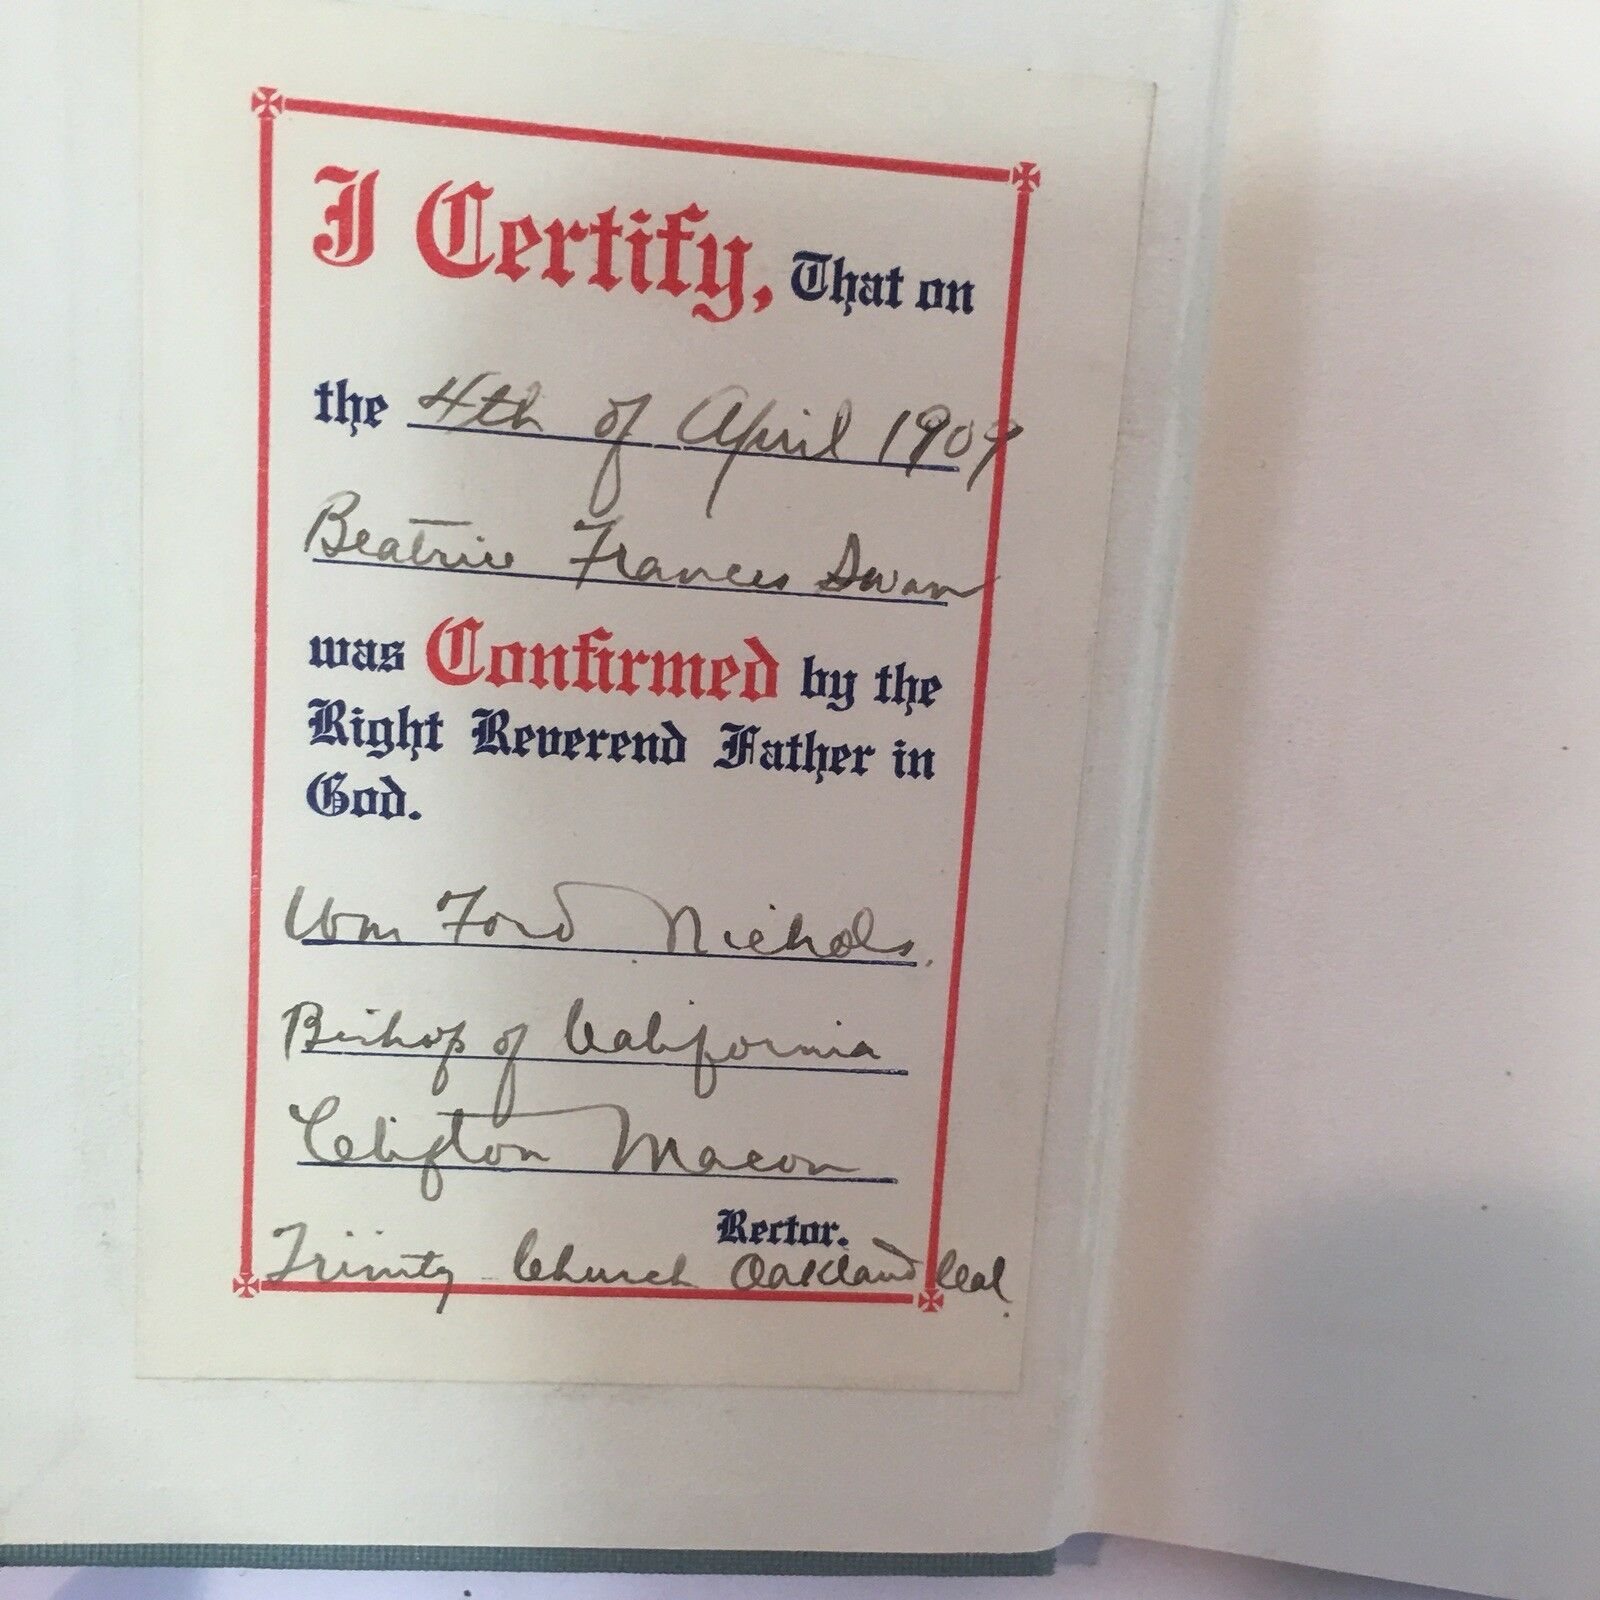 I Certify, That on
the 4th of April 1909
Beatrice Frances Swan
was Confirmed by the
Right Reverend Father in
God.
Wm Ford Nichols.
Bishop of California
Clifton Macon
Rector.
Trinity Church Oakland Cal.